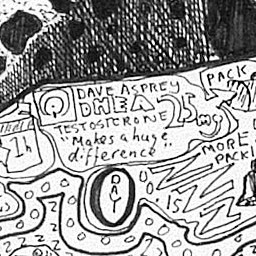 DAVE ASPREY
DHEA 25mg
TESTOSTERONE
"Makes a huge
difference".
PACK
MORE
PACK
1h
DAY
0
'15